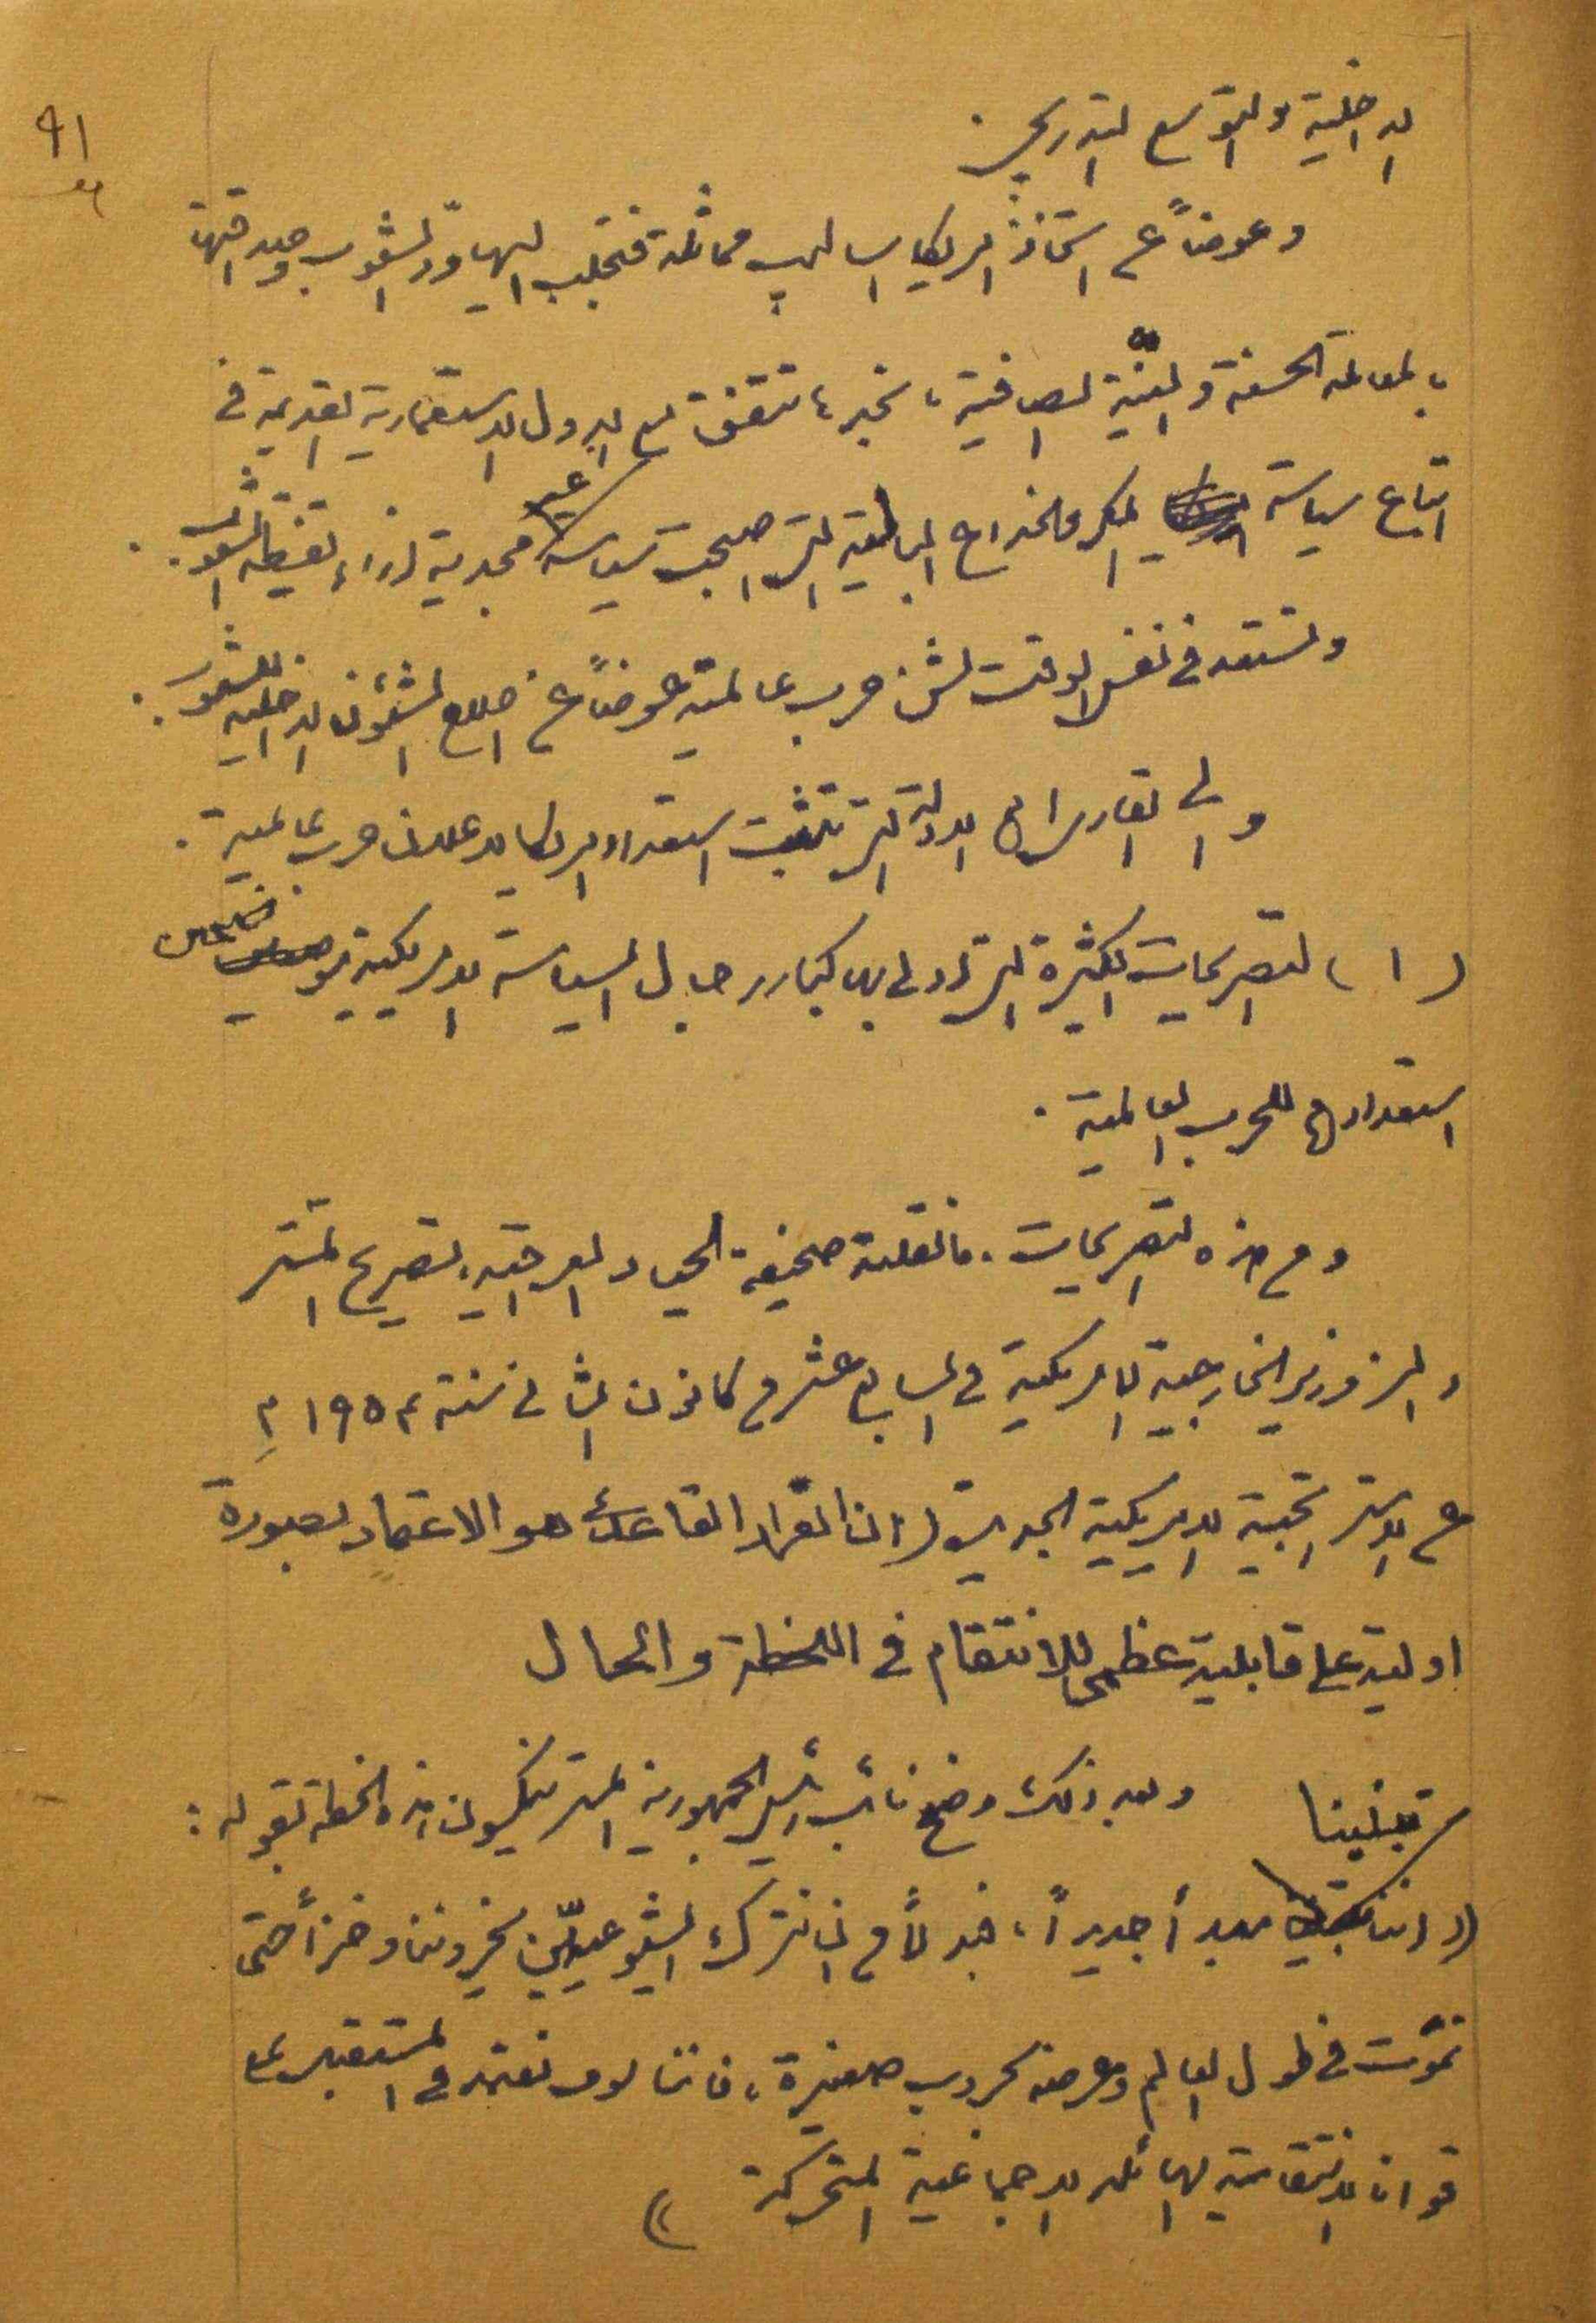 ٩١
الداخلية والتوسع التدريجي.
وعوضاً عن اتخاذ امريكا اساليب مماثلة فتجلب اليها ودّ الشعوب وصداقتها
بالمعاملة الحسنة والنيّة الصافية، نجدها تتفق مع الدول الاستعمارية القديمة في
اتباع سياسة المكر والخداع الباطنية التي اصبحت سياسة غير مجدية ازاء يقظة الشعوب.
وتستعد في نفس الوقت لشن حرب عالمية عوضاً عن اصلاح الشؤون الداخلية للشعوب.
والى القارىء الادلة التي تثبت استعداد امريكا لاعلان حرب عالمية.
(١) التصريحات الكثيرة التي ادلى بها كبار رجال السياسة الامريكية موضحين
استعدادهم للحرب العالمية.
ومن هذه التصريحات. ما نقلته صحيفة الحياد العراقية، تصريح المستر
دالس وزير الخارجية الامريكية في السابع عشر من كانون الثاني سنة ١٩٥٤ م
عن الاستراتيجية الامريكية الجديدة (ان القرار القاعدي هو الاعتماد بصورة
اولية على قابلية عظمى للانتقام في اللحظة والحال
وبعد ذلك وضح نائب رئيس الجمهورية المستر نيكسون هذه الخطة بقوله:
((اننا تبنينا مبدأ جديداً، فبدلاً من ان نترك الشيوعيين يخزوننا وخزاً حتى
نموت في طول العالم وعرضه بحروب صغيرة، فاننا سوف نعتمد في المستقبل على
قوانا الانتقامية الهائلة الاجماعية المتحركة ))